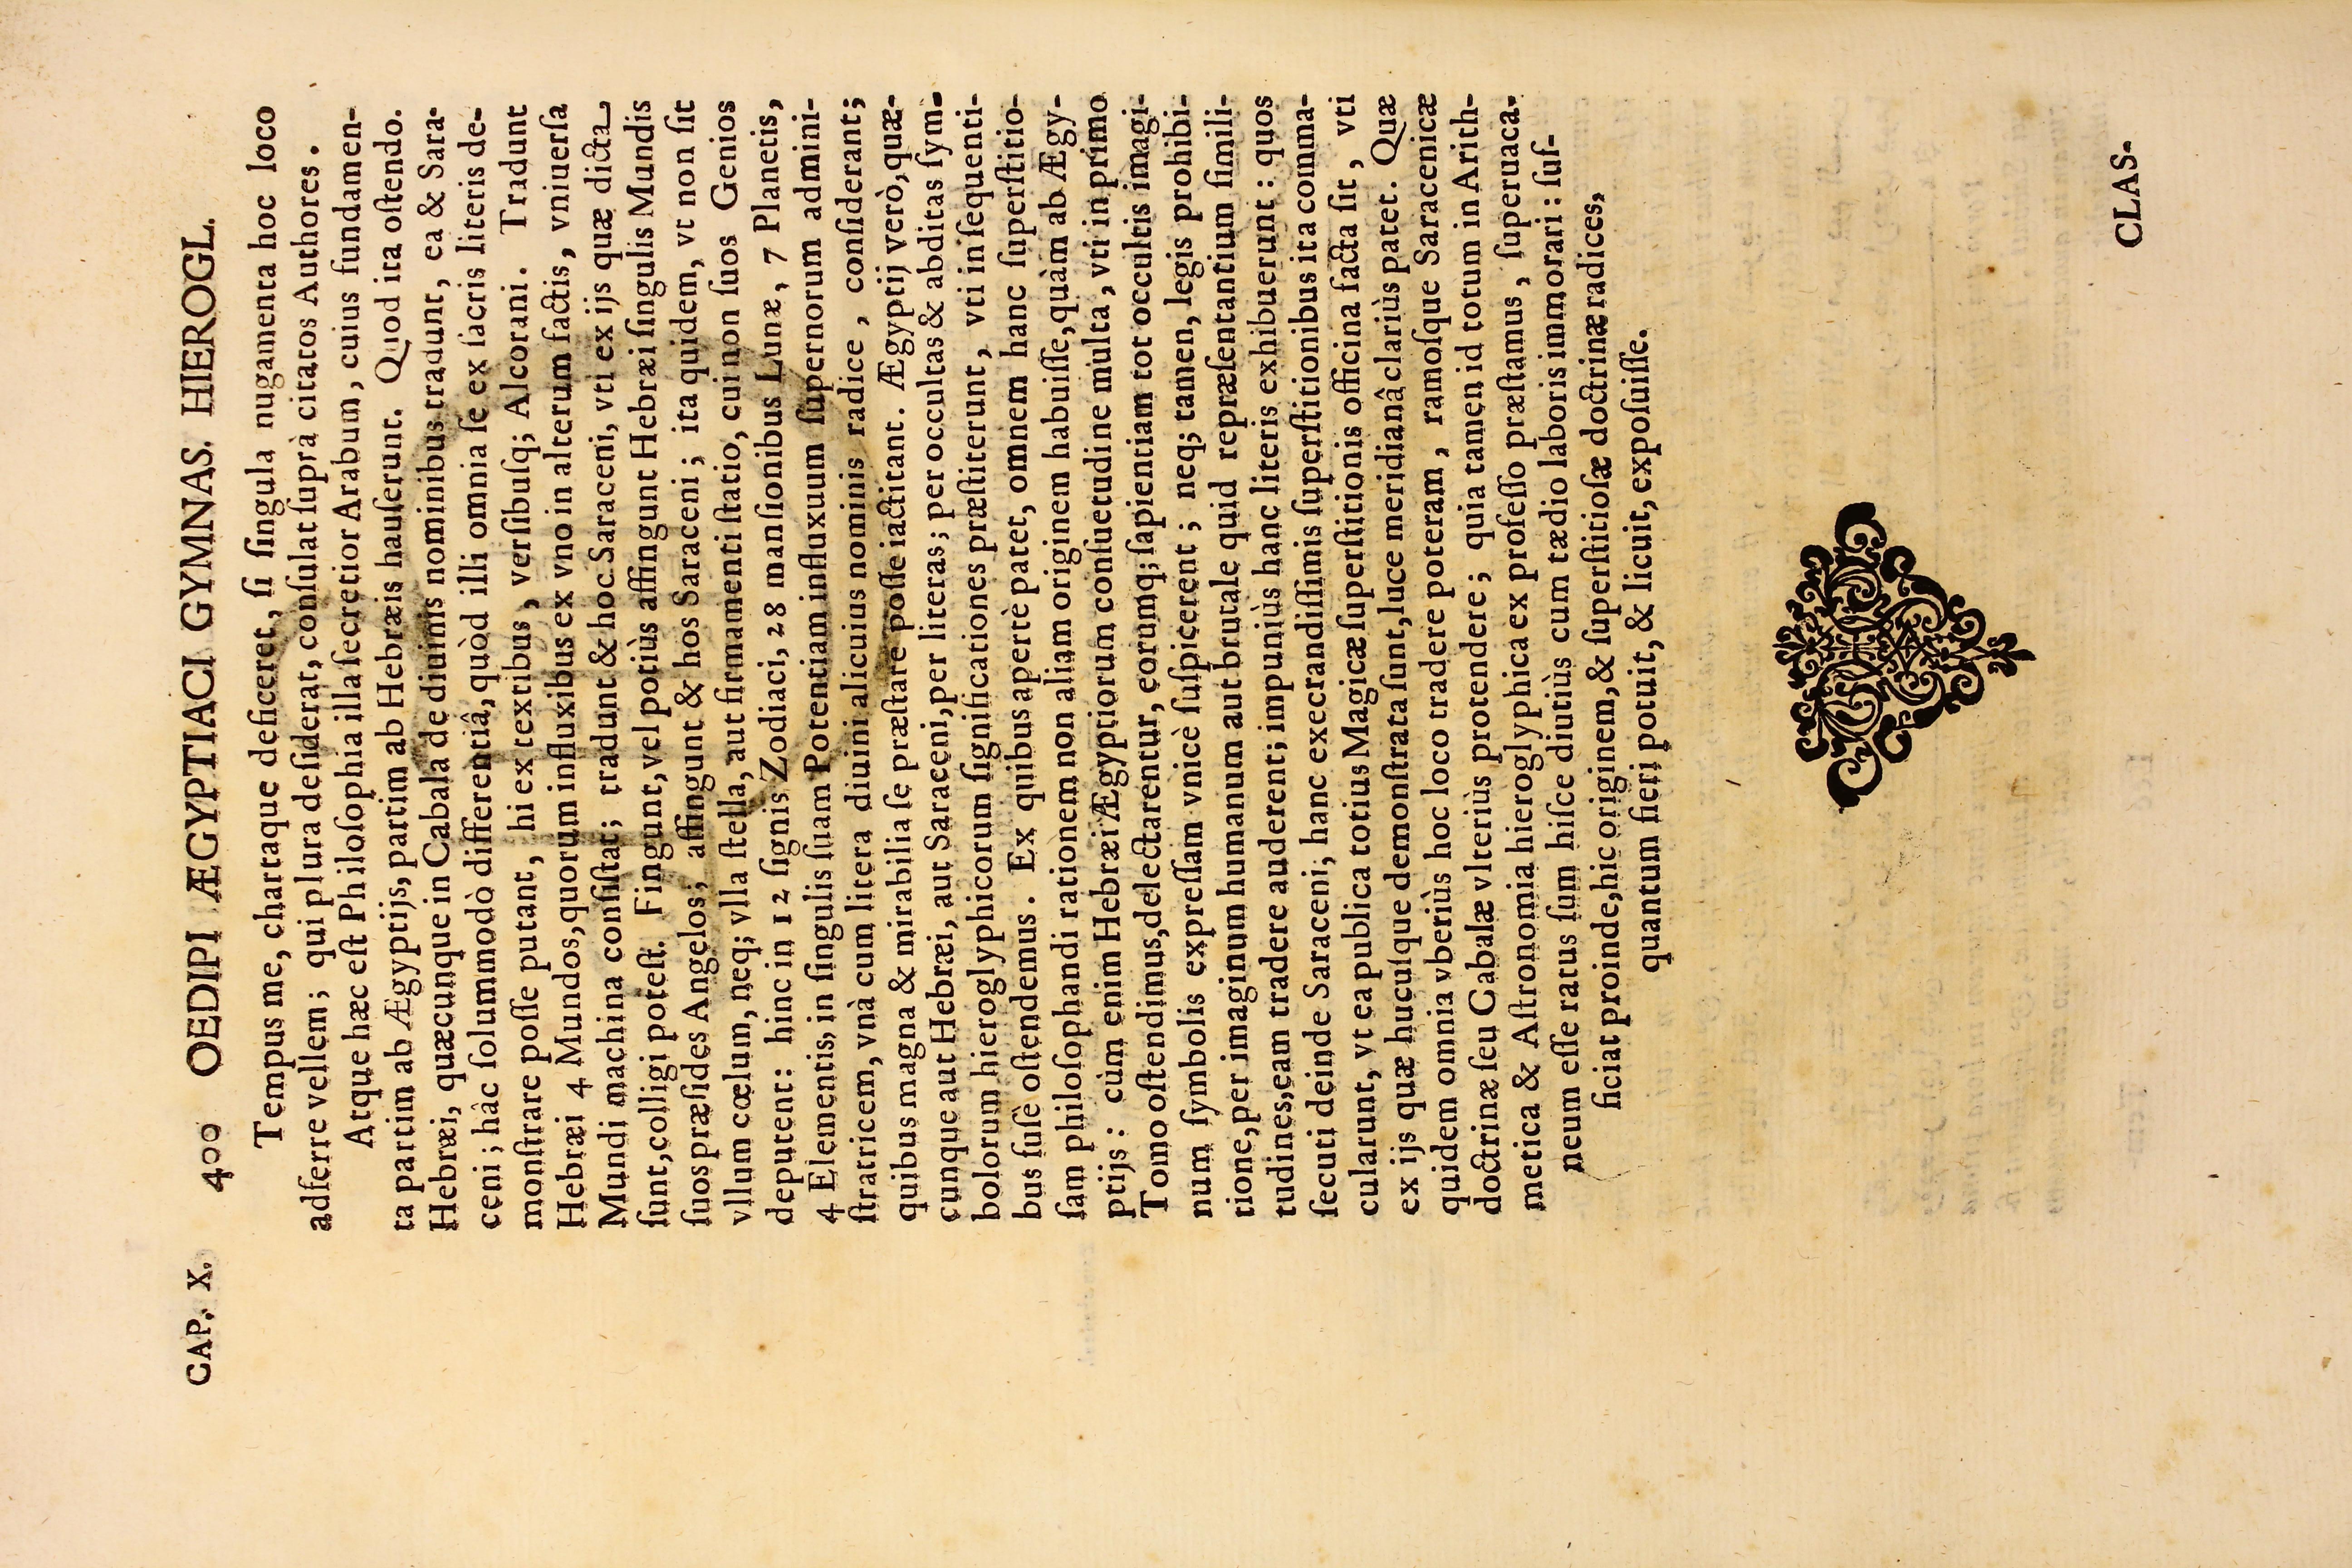 CAP. X. 400 OEDIPI ÆGYPTIACI GYMNAS. HIEROGL.
Tempus me, chartaque deficeret, ſi ſingula nugamenta hoc loco
adferre vellem; qui plura deſiderat, conſulat ſuprà citatos Authores.
Atque hæc eſt Philoſophia illa ſecretior Arabum, cuius fundamen-
ta partim ab Ægyptijs, partim ab Hebræis hauſerunt. Quod ita oſtendo.
Hebræi, quæcunque in Cabala de diuinis nominibus tradunt, ea & Sara-
ceni; hâc ſolummodò differentiâ, quòd illi omnia ſe ex ſacris literis de-
monſtrare poſſe putant, hi ex textibus, verſibuſq; Alcorani. Tradunt
Hebræi 4 Mundos, quorum influxibus ex vno in alterum factis, vniuerſa
Mundi machina conſiſtat; tradunt & hoc Saraceni, vti ex ijs quæ dicta
ſunt, colligi poteſt. Fingunt, vel potiùs affingunt Hebræi ſingulis Mundis
ſuos præſides Angelos; affingunt & hos Saraceni; ita quidem, vt non ſit
vllum cœlum, neq; vlla ſtella, aut firmamenti ſtatio, cui non ſuos Genios
deputent: hinc in 12 ſignis Zodiaci, 28 manſionibus Lunæ, 7 Planetis,
4 Elementis, in ſingulis ſuam Potentiam influxuum ſupernorum admini-
ſtratricem, vnà cum litera diuini alicuius nominis radice, conſiderant;
quibus magna & mirabilia ſe præſtare poſſe iactitant. Ægyptij verò, quæ-
cunque aut Hebræi, aut Saraceni, per literas; per occultas & abditas ſym-
bolorum hieroglyphicorum ſignificationes præſtiterunt, vti in ſequenti-
bus fuſè oſtendemus. Ex quibus apertè patet, omnem hanc ſuperſtitio-
ſam philoſophandi rationem non aliam originem habuiſſe, quàm ab Ægy-
ptijs: cùm enim Hebræi Ægyptiorum conſuetudine multa, vti in primo
Tomo oſtendimus, delectarentur, eorumq; ſapientiam tot occultis imagi-
num ſymbolis expreſſam vnicè ſuſpicerent; neq; tamen, legis prohibi-
tione, per imaginum humanum aut brutale quid repræſentantium ſimili-
tudines, eam tradere auderent; impuniùs hanc literis exhibuerunt: quos
ſecuti deinde Saraceni, hanc execrandiſſimis ſuperſtitionibus ita comma-
cularunt, vt ea publica totius Magicæ ſuperſtitionis officina facta ſit, vti
ex ijs quæ hucuſque demonſtrata ſunt, luce meridianâ clariùs patet. Quæ
quidem omnia vberiùs hoc loco tradere poteram, ramoſque Saracenicæ
doctrinæ ſeu Cabalæ vlteriùs protendere; quia tamen id totum in Arith-
metica & Aſtronomia hieroglyphica ex profeſſo præſtamus, ſuperuaca-
neum eſſe ratus ſum hiſce diutiùs cum tædio laboris immorari: ſuf-
ficiat proinde, hic originem, & ſuperſtitioſæ doctrinæ radices,
quantum fieri potuit, & licuit, expoſuiſſe.
CLAS-